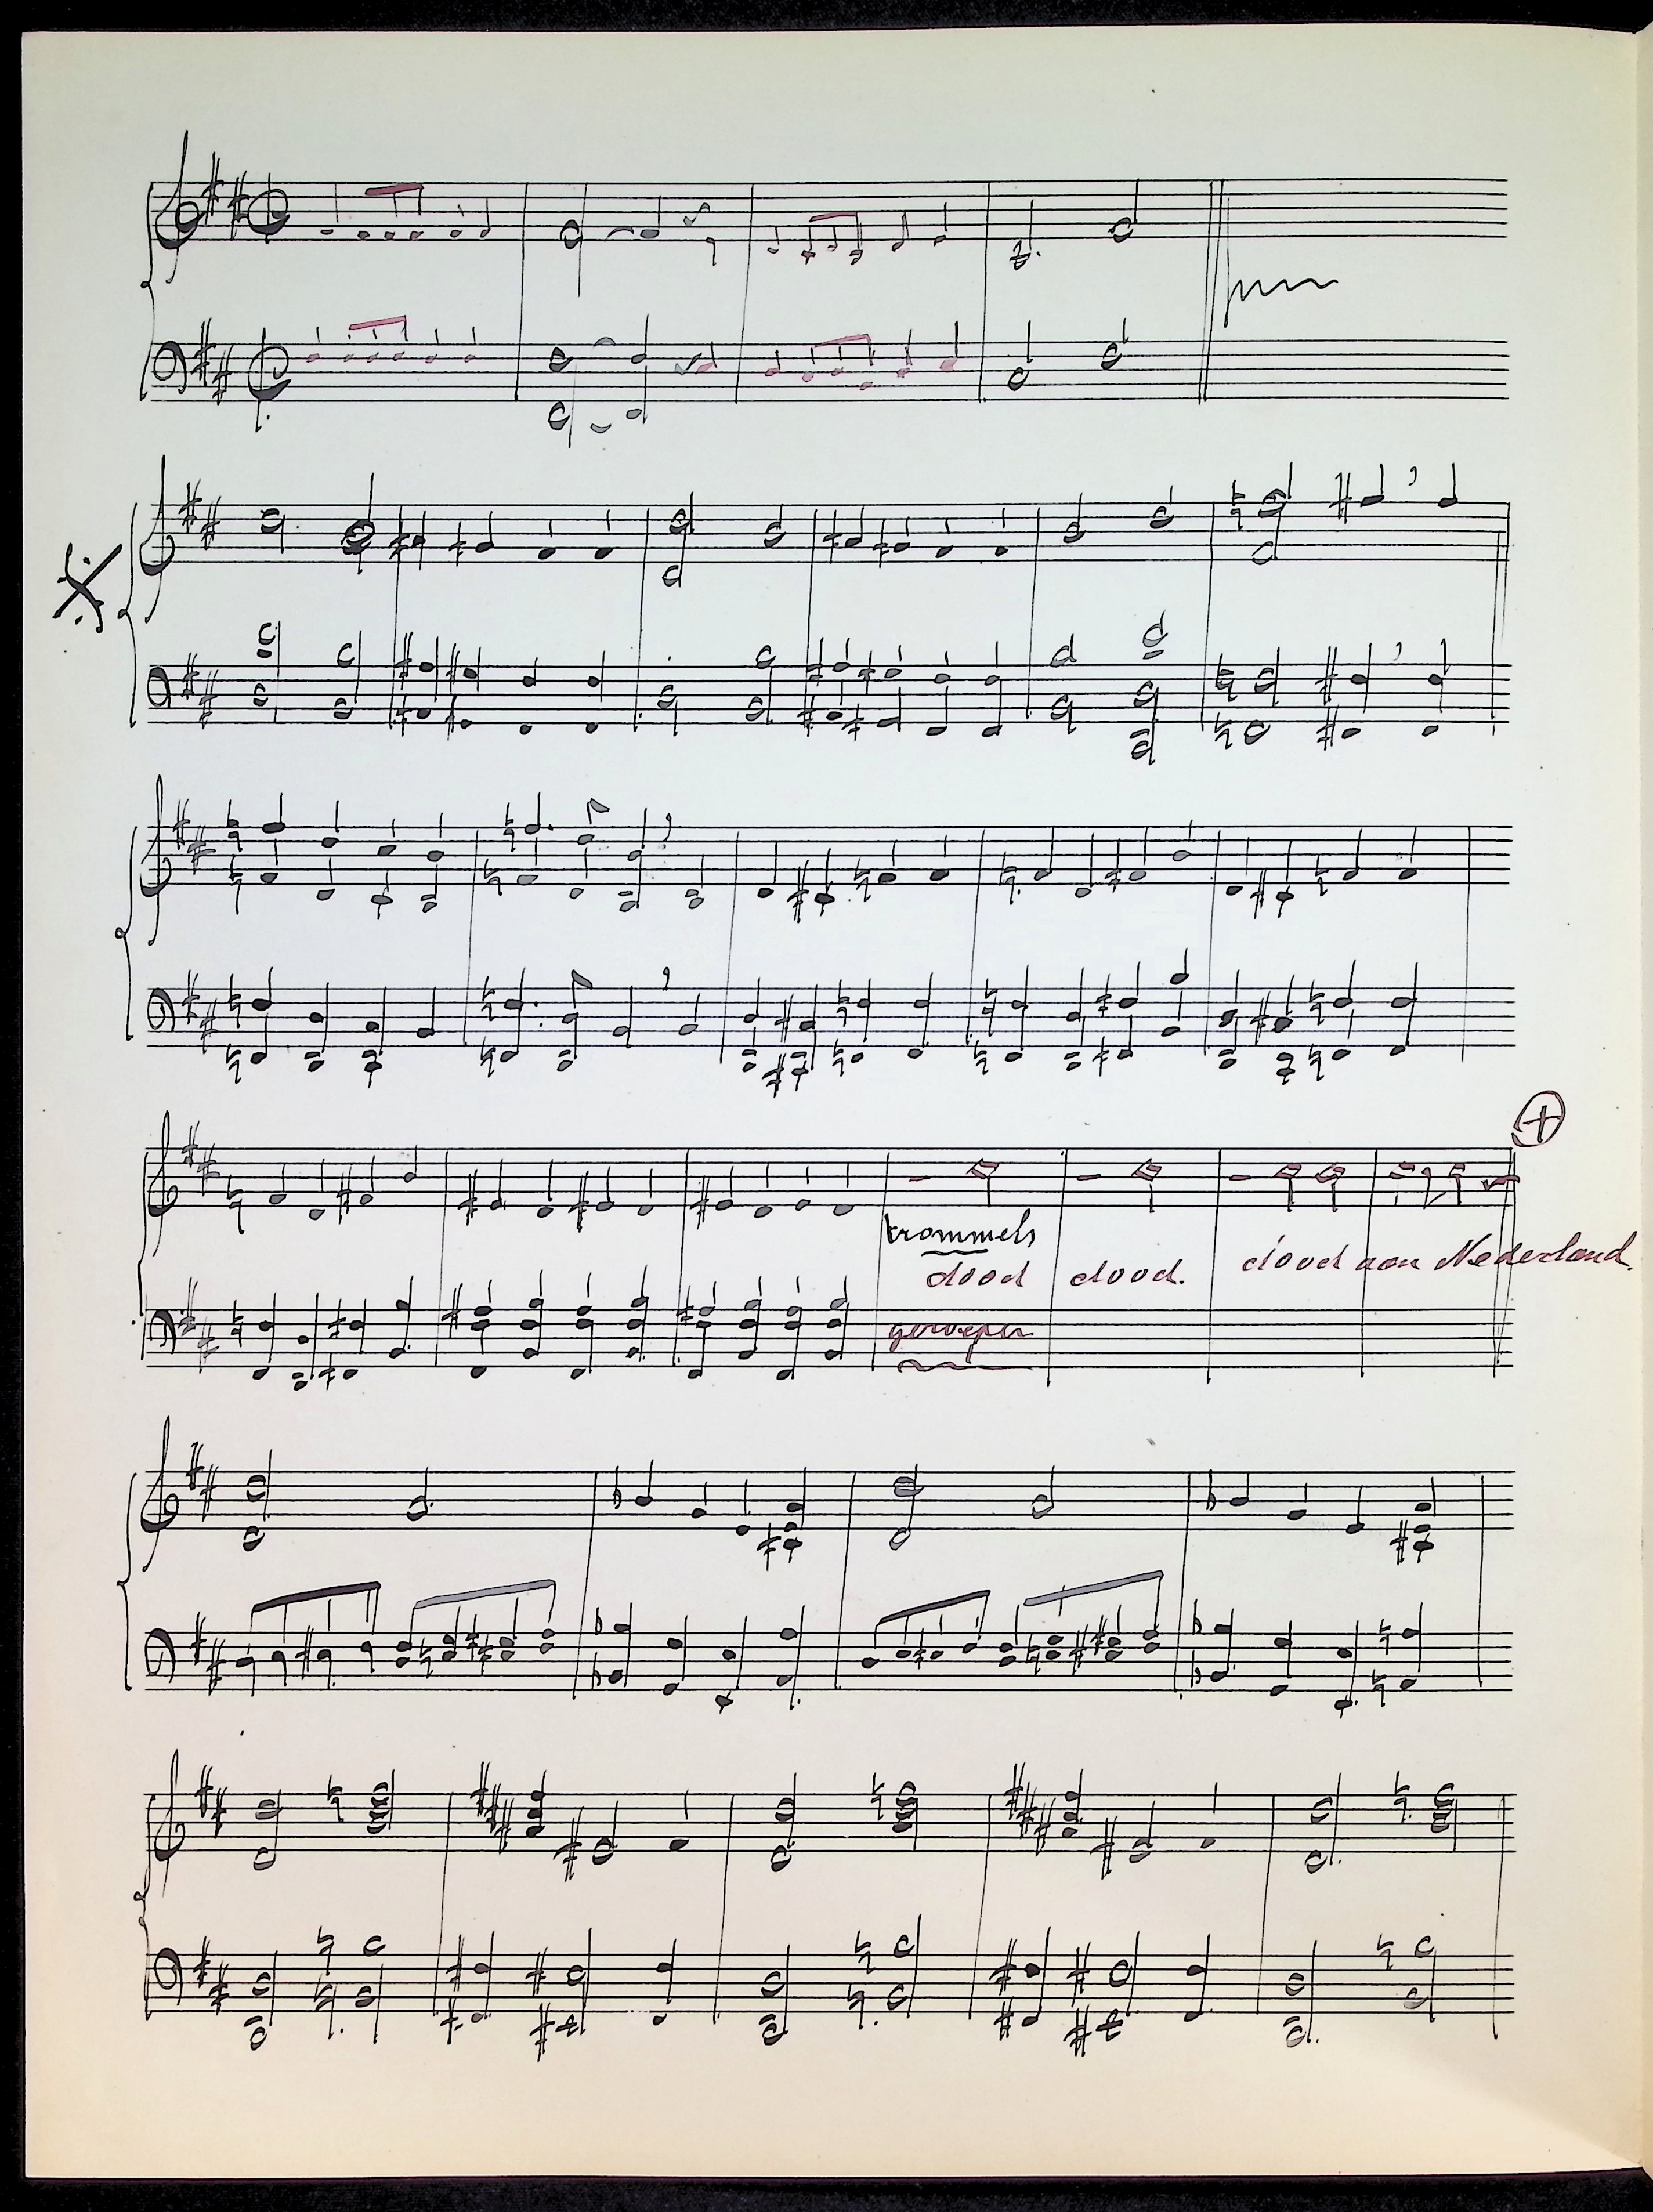 trommels
dood dood. dood aan Nederland.
geroepen